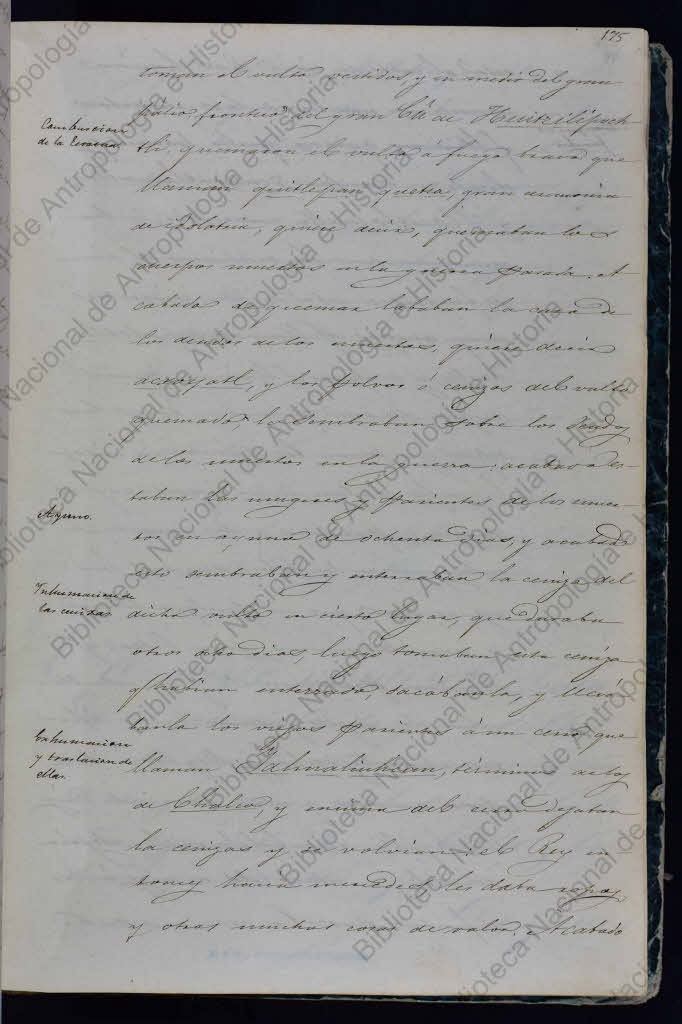 175
toman el vulto vestidos, y en medio del gran
patio frontero del gran Cú de Huitzilipoch-
Combustion
de la
tli, quemaron el vulto á fuego bravo que
llaman quitlepan quetza, gran ceremonia
de idolatria, quiere decir, quemaban los
cuerpos muertos en la guerra pasada. A
cabado de quemar lababan la cara de
los deudos de los muertos, quiere decir
acxoyatl, y los polvos ó cenizas del vulto
quemado le sembraban sobre los deudos
de los muertos en la guerra: acabado es-
taban las mugeres y parientes de los muer-
Ayuno.
tos en ayuno de ochenta dias, y acabado
esto sembraban y enterraban la ceniza del
Inhumacion de
las cenizas
dicho vulto en cierto lugar, que duraba
otros ocho dias, luego tomaban esta ceniza
q habian enterrado, sacábanla, y llevá
banla los viejos parientes á un cerro que
Exhumacion
y traslacion de
ellas.
llaman Yahualiuhcan, términos de los
de Chalco, y encima del cerro dejaban
la cenizas y se volvian: el Rey en-
tonces hacia mercedes, les daba ropas,
y otras muchas cosas de valor. Acabado
Biblioteca Nacional de Antropología e Historia